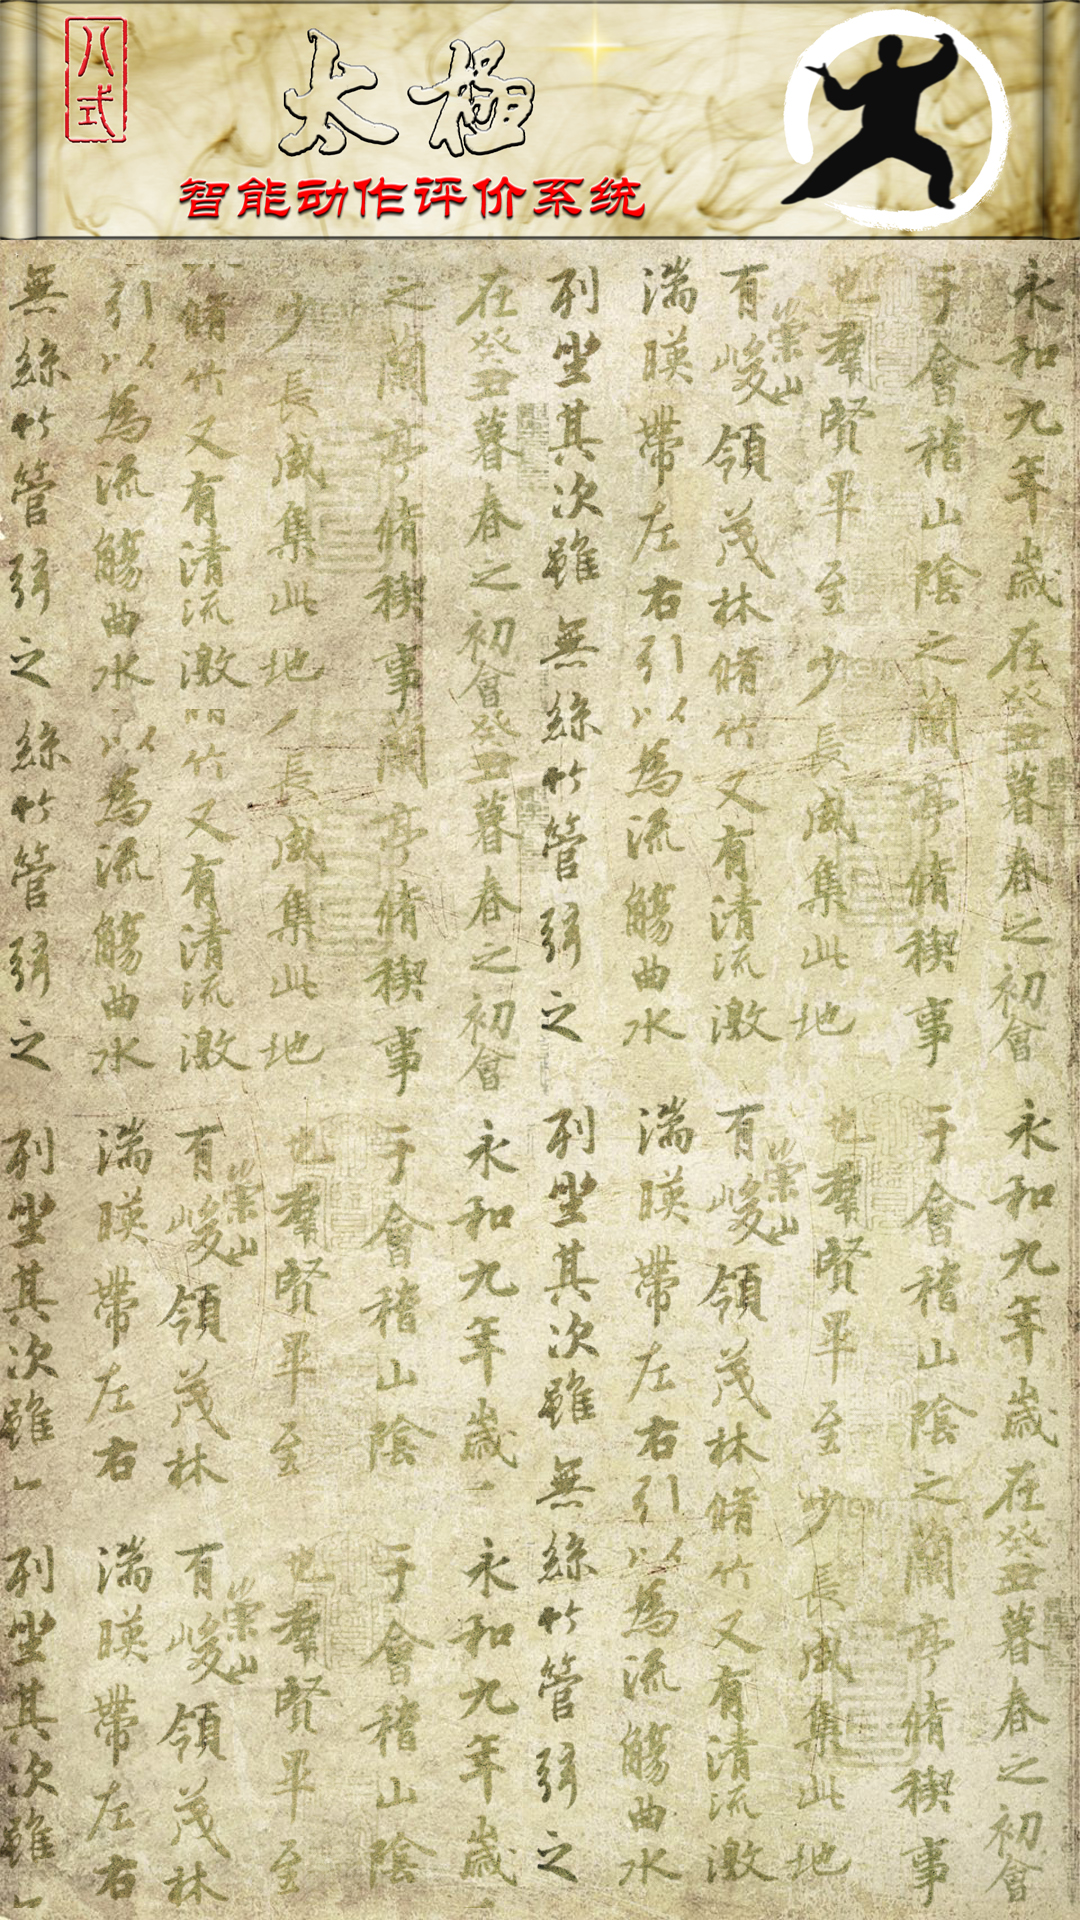 八式
太極
智能动作评价系统
永和九年歲在癸丑暮春之初會
于會稽山陰之蘭亭脩稧事
也羣賢畢至少長咸集此地
有崇山峻領茂林脩竹又有清流激
湍暎帶左右引以為流觴曲水
列坐其次雖無絲竹管弦之
在癸丑暮春之初會癸丑暮春之初會
之蘭亭脩稧事蘭亭脩稧事
少長咸集此地長咸集此地
脩竹又有清流激竹又有清流激
引以為流觴曲水以為流觴曲水
無絲竹管弦之絲竹管弦之
永和九年歲在癸丑暮春之初會
于會稽山陰之蘭亭脩稧事
也羣賢畢至少長咸集此地
有崇山峻領茂林脩竹又有清流激
湍暎帶左右引以為流觴曲水
列坐其次雖無絲竹管弦之
永和九年歲
于會稽山陰
也羣賢畢至
有崇山峻領茂林
湍暎帶左右
列坐其次雖
永和九年歲
于會稽山陰
也羣賢畢至
有崇山峻領茂林
湍暎帶左右
列坐其次雖